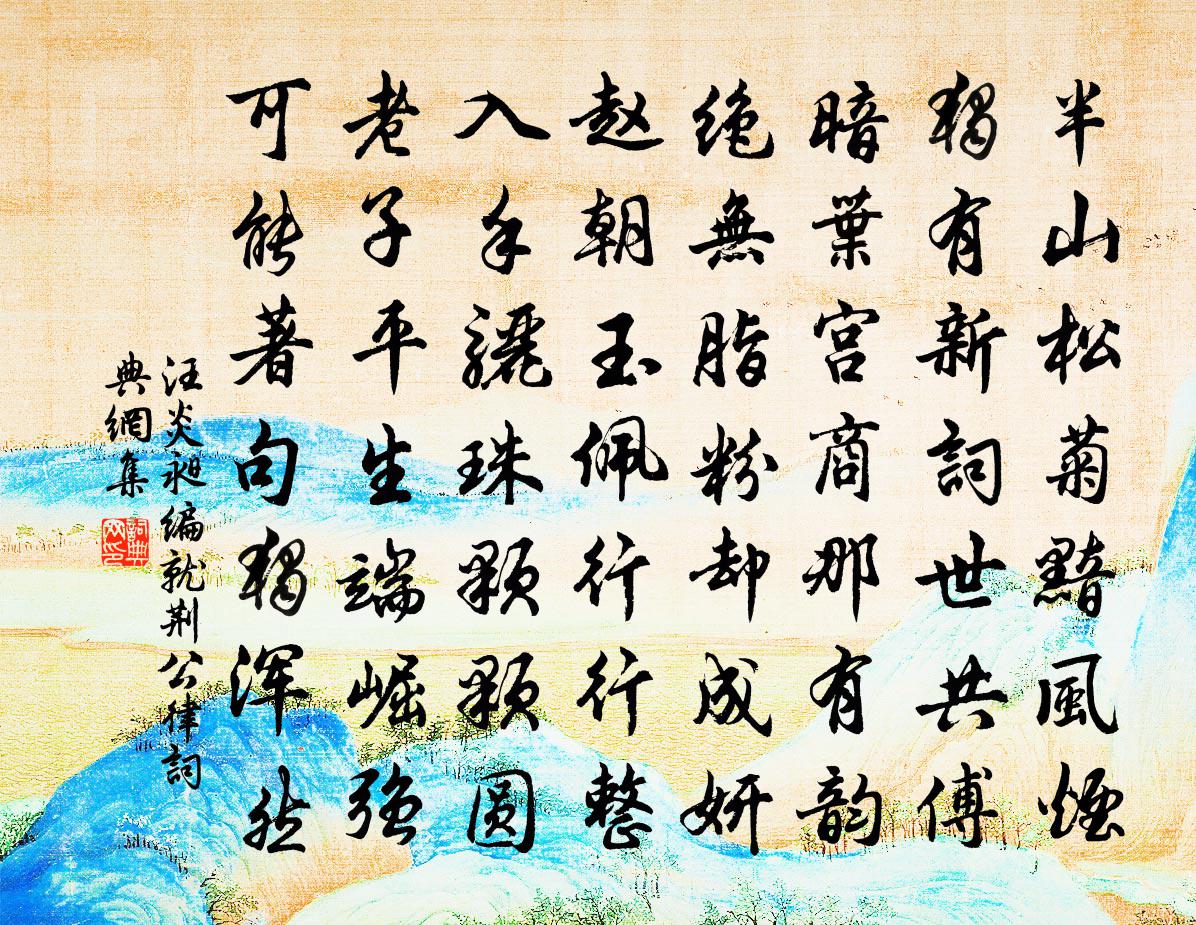 半山松菊黯風煙
獨有新詞世共傳
暗葉宮商那有韵
絶無脂粉却成妍
趍朝玉佩行行整
入手驪珠顆顆圓
老子平生端崛强
可能著句獨渾然
汪炎昶編就荆公律詞
典網集
詞典網印